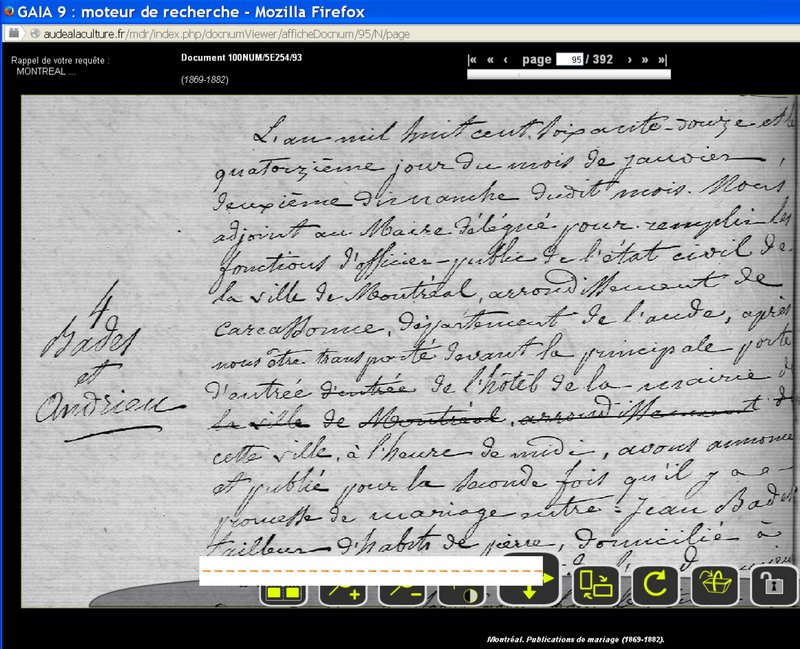 GAIA 9 : moteur de recherche - Mozilla Firefox
audealaculture.fr/mdr/index.php/docnumViewer/afficheDocnum/95/N/page
Rappel de votre requête :
MONTREAL ...
Document 100NUM/5E254/93
(1869-1882)
|« « ‹ page 95 / 392 › » »|
L'an mil huit cent soixante-douze et le
quatorzième jour du mois de janvier,
deuxième dimanche dudit mois. Nous
adjoint au Maire délégué pour remplir les
fonctions d'officier public de l'état civil de
la ville de Montréal, arrondissement de
Carcassonne, département de l'aude, après
nous être transporté devant la principale porte
d'entrée d'entrée de l'hôtel de la mairie de
la ville de Montréal, arrondissement de
cette ville, à l'heure de midi, avons annoncé
et publié pour la seconde fois qu'il y a
promesse de mariage entre : Jean Bades
tailleur d'habits de pierre, domicilié à
4
Bades
et
Andrieu
Montréal. Publications de mariage (1869-1882).